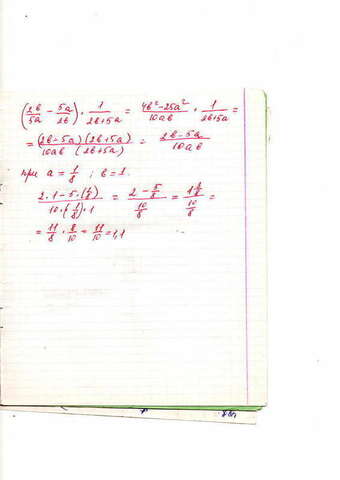 (2в/5a − 5a/2в) · 1/(2в+5a) = (4в²−25a²)/(10aв) · 1/(2в+5a) =
= (2в−5a)(2в+5a)/(10aв (2в+5a)) = (2в−5a)/(10aв)
при a = 1/8 ; в = 1.
(2·1−5·(1/8))/(10·(1/8)·1) = (2 − 5/8)/(10/8) = (1 3/8)/(10/8) =
= 11/8 · 8/10 = 11/10 = 1,1